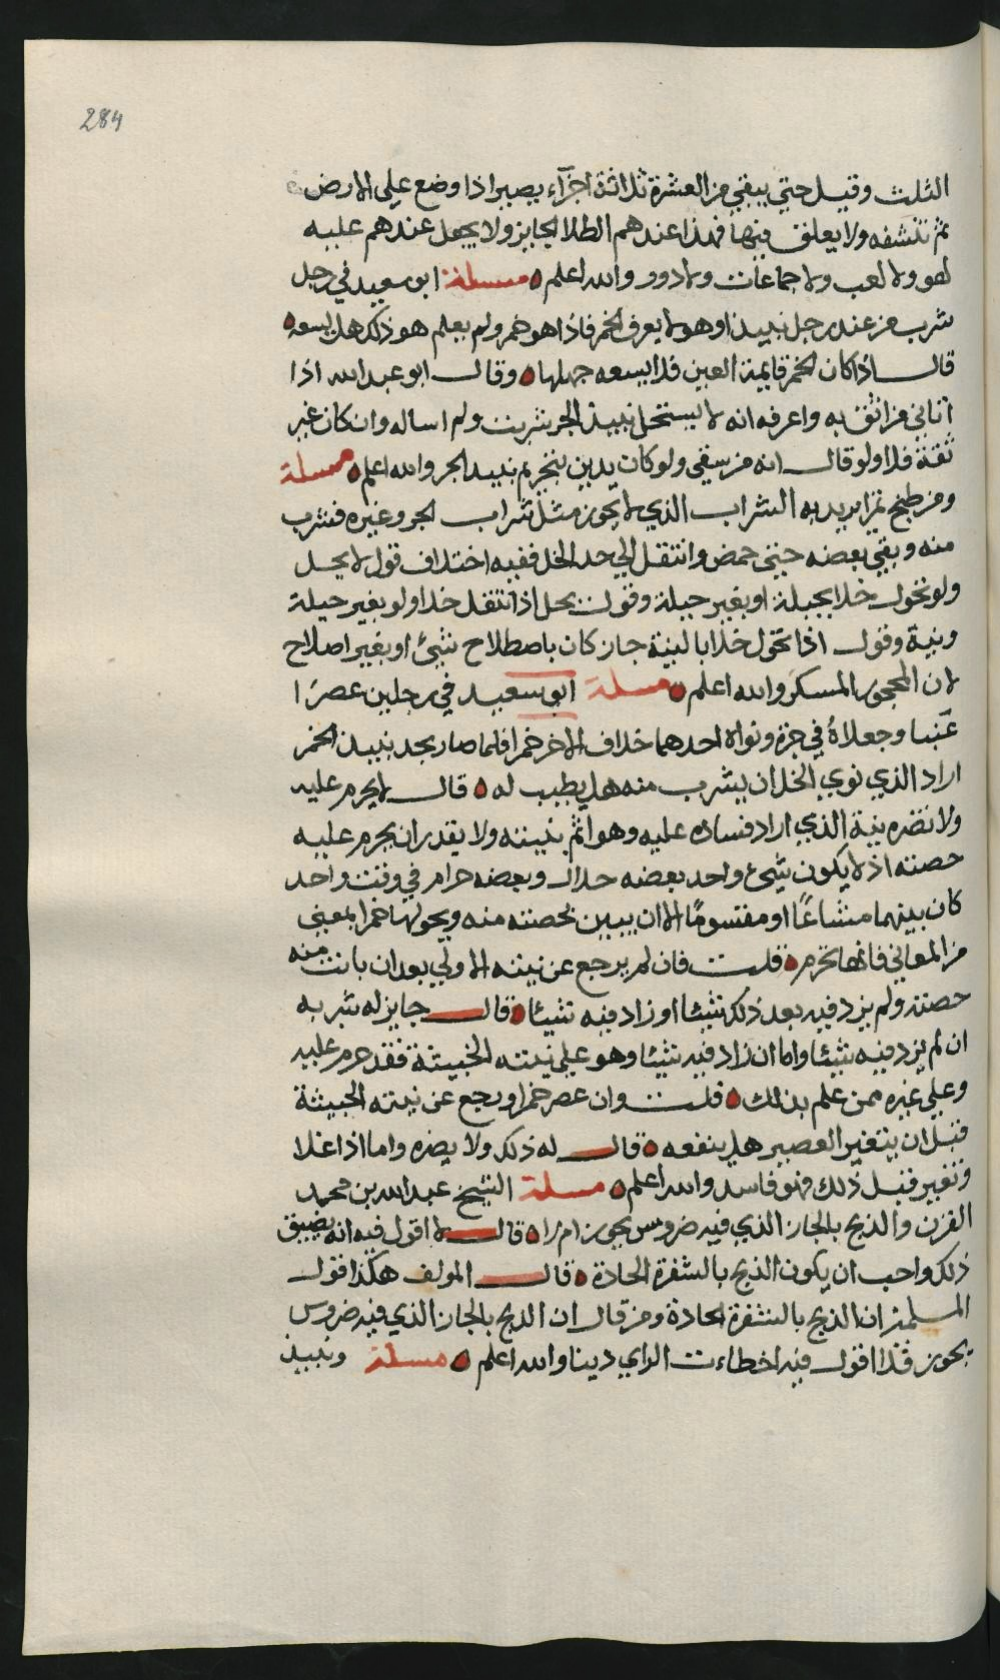 284
الثلث وقيل حتي يبقي من العشرة ثلاثة اجزآء يصير اذا وضع علي الارض
لم تنشفه ولا يعلق فيها فهذا عندهم الطلا الجايز ولا يجعل عندهم عليه
لهو ولا لعب ولا جماعات ولا دور والله اعلم مسئلة ابو سعيد في رجل
شرب من عند رجل نبيذا وهو لا يعرف الخمر فاذا هو خمر ولم يعلم هو ذلك هل يسعه
قال اذا كان الخمر قايمة العين فلا يسعه جهلها وقال ابو عبد الله اذا
اتاني من اثق به واعرفه انه لا يستحل نبيذ الجر شربت ولم اساله وان كان غير
ثقة فلا ولو قال انه من سقى ولو كان يدين بتحريم نبيذ الجر والله اعلم مسئلة
ومن طبخ تمرا يريد به الشراب الذي لا يجوز مثل شراب الجر وغيره فشرب
منه وبقي بعضه حتي حمض وانتقل الي حد الخل ففيه اختلاف قول لا يحل
ولو تحول خلا بحيلة او بغير حيلة وقول يحل اذا انتقل خلا ولو بغير حيلة
ونية وقول اذا تحول خلا بالنية جاز كان باصطلاح شيئ او بغير اصلاح
لان المحجور المسكر والله اعلم مسئلة ابو سعيد في رجلين عصرا
عنبا وجعلاه في جرة ونواه احدهما خلاف الاخر خمرا فلما صار بحد نبيذ الخمر
اراد الذي نوي الخل ان يشرب منه هل يطيب له قال لا يحرم عليه
ولا تضره نية الذي اراد فساده عليه وهو اثم بنيته ولا يقدر ان يحرم عليه
حصته اذ لا يكون شيء واحد بعضه حلال وبعضه حرام في وقت واحد
كان بينهما مشاعًا او مقسومًا الا ان يبين بحصته منه ويحولها خمرا بمعني
من المعاني فانها تحرم قلت فان لم يرجع عن نيته الاولي بعد ان بانت منه
حصته ولم يزد فيه بعد ذلك شيئا او زاد فيه شيئا قال جايز له شربه
ان لم يزد فيه شيئا واما ان زاد فيه شيئا وهو علي نيته الخبيثة فقد حرم عليه
وعلي غيره ممن علم بذلك قلت وان عصر خمرا ورجع عن نيته الخبيثة
قبل ان يتغير العصير هل ينفعه قال له ذلك ولا يضره واما اذا غلا
وتغير قبل ذلك فهو فاسد والله اعلم مسئلة الشيخ عبد الله بن محمد
القرن والذبح بالجاز الذي فيه ضروس يجوز ام لا قال لا اقول فيه انه يضيق
ذلك واحب ان يكون الذبح بالشفرة الحادة قال المولف هكذا قول
المسلمين ان الذبح بالشفرة الحادة ومن قال ان الذبح بالجاز الذي فيه ضروس
يجوز فلا اقول فيه اخطاءت الراي دينا والله اعلم مسئلة ونبيذ